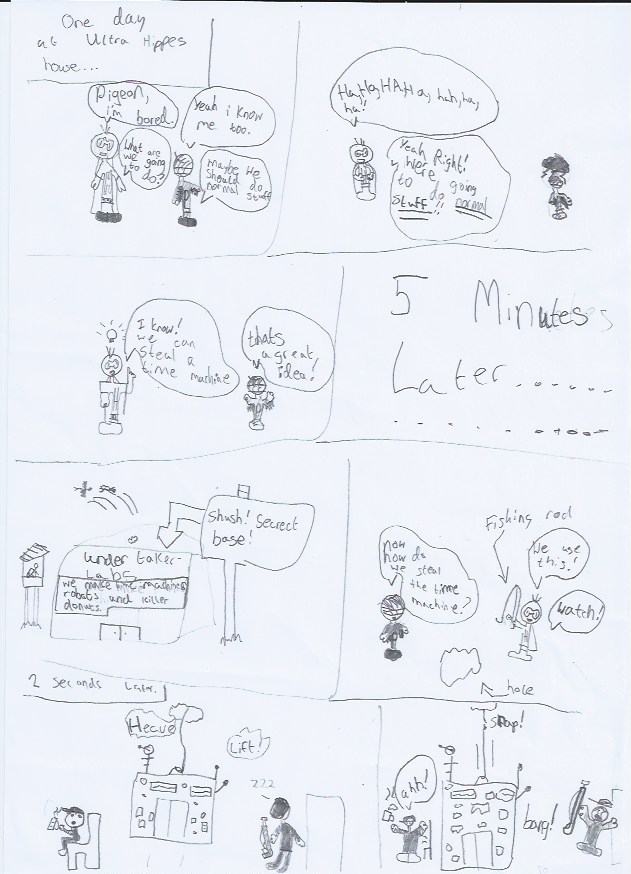 One day
at Ultra Hippes
howe...
Pigeon,
i'm bored.
Yeah i know
me too.
What are
we going
to do?
Maybe we
should do
normal stuff
Ha,Ha,HA,Ha, hah, ha,
ha!
Yeah Right!
were going
to do normal
stuff!!
I know!
we can
Steal a
time machine
thats
a great
idea!
5 Minutes
Later......
Shush! Secrect
base!
under taker
Labs
we make time machines
robots and killer
donuts.
now
how do
we steal
the time
machine?
Fishing rod
We use
this!
Watch!
hole
2 seconds Later.
Heave
Lift!
zzz
Snap!
ahh!
bang!